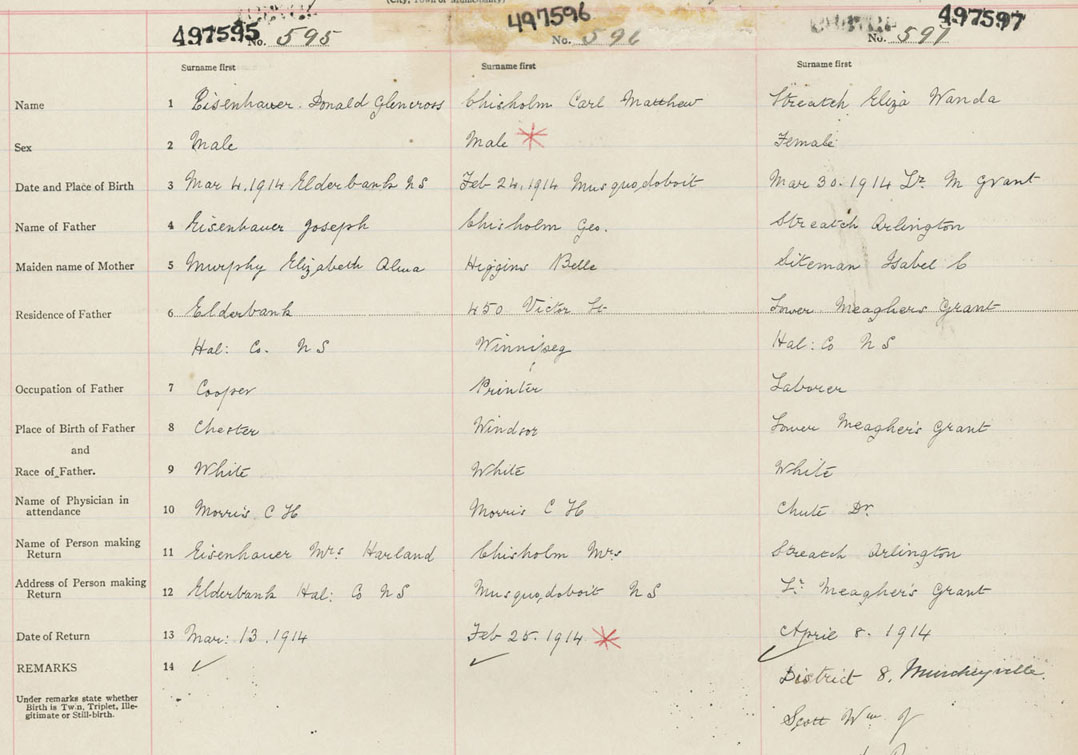 (City, Town or Municipality)
497595 No. 595
497596 No. 596
No. 597 497597
Surname first Surname first Surname first
Name 1 Eisenhauer Donald Glencross Chisholm Carl Matthew Streatch Eliza Wanda
Sex 2 Male Male Female
Date and Place of Birth 3 Mar 4. 1914 Elderbank NS Feb 24. 1914 Musquodoboit Mar 30. 1914 Lr. M Grant
Name of Father 4 Eisenhauer Joseph Chisholm Geo. Streatch Arlington
Maiden name of Mother 5 Murphy Elizabeth Alma Higgins Belle Siteman Isabel C
Residence of Father 6 Elderbank 450 Victor St Lower Meaghers Grant
Hal: Co. N S Winnipeg Hal: Co N S
Occupation of Father 7 Cooper Printer Laborer
Place of Birth of Father 8 Chester Windsor Lower Meagher's Grant
and
Race of Father. 9 White White White
Name of Physician in
attendance 10 Morris C H Morris C H Chute Dr.
Name of Person making
Return 11 Eisenhauer Mrs Harland Chisholm Mrs Streatch Arlington
Address of Person making
Return 12 Elderbank Hal: Co N S Musquodoboit N S Lr. Meagher's Grant
Date of Return 13 Mar: 13. 1914 Feb 25. 1914 April 8. 1914
REMARKS 14
District 8,
Under remarks state whether
Birth is Twin, Triplet, Ille-
gitimate or Still-birth.
Scott Wm J